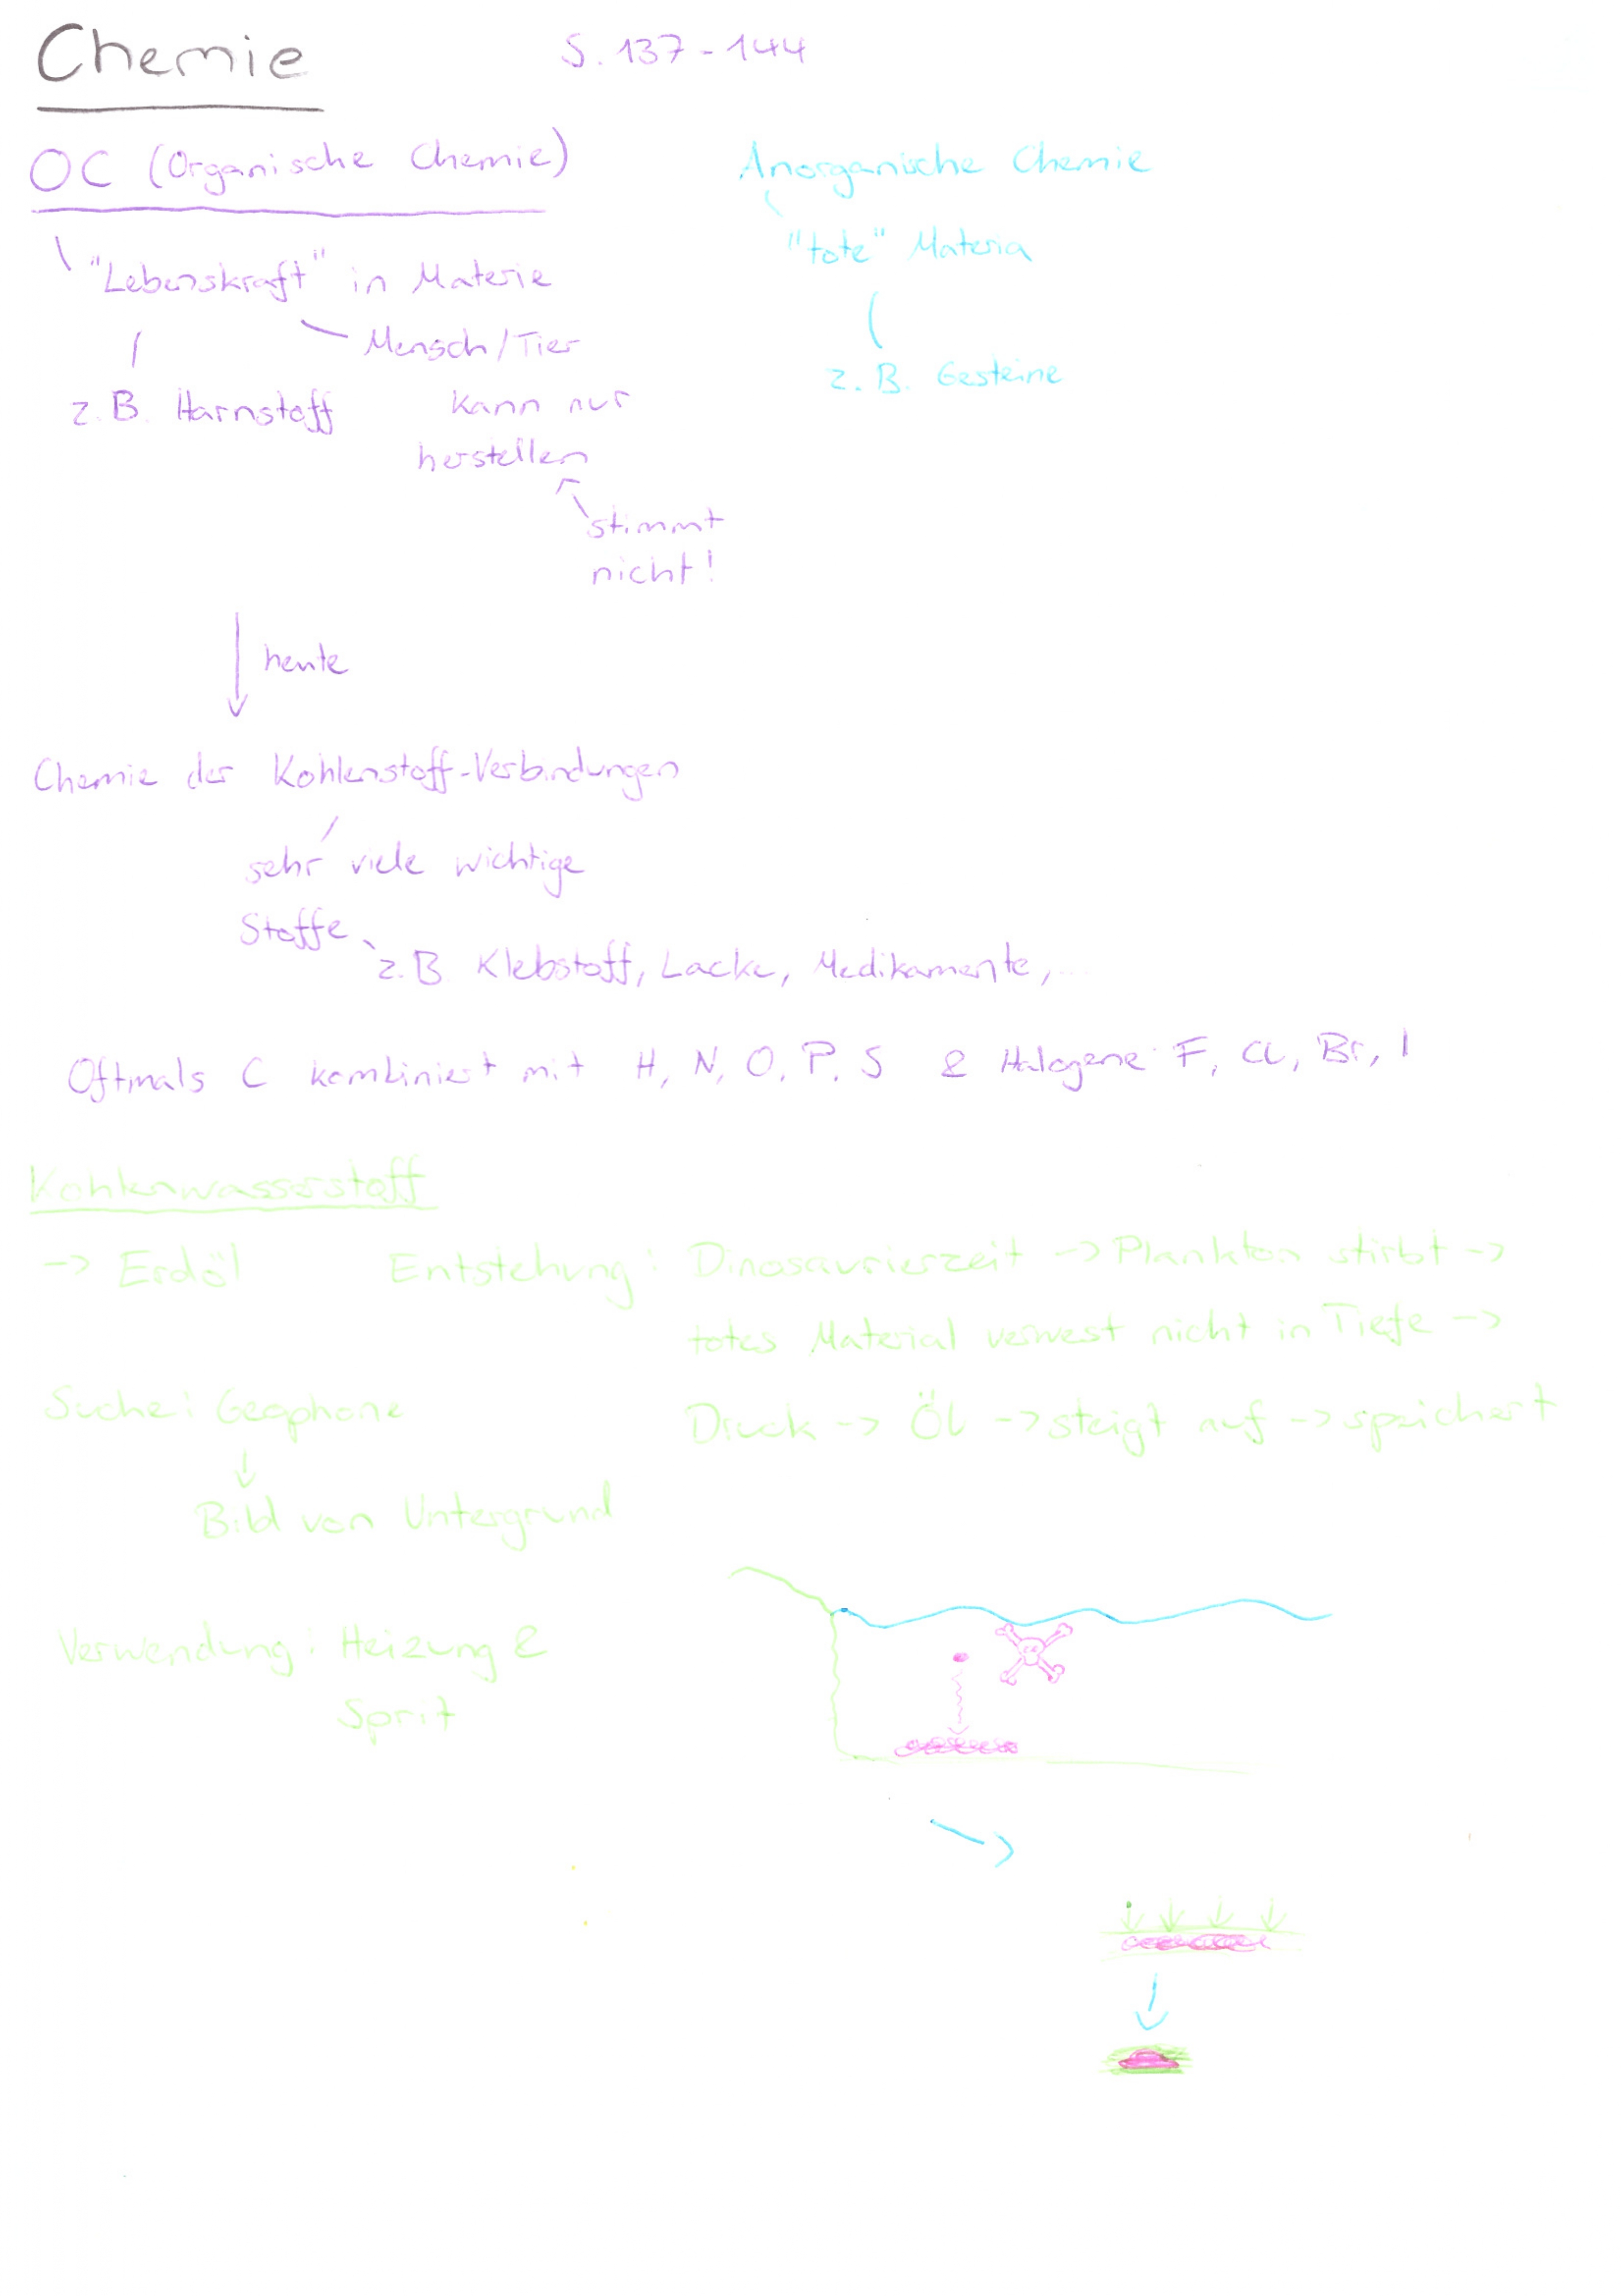 Chemie S. 137-144
OC (Organische Chemie)
Anorganische Chemie
"Lebenskraft" in Materie
"tote" Materia
Mensch/Tier
kann nur
herstellen
z.B. Harnstoff
z.B. Gesteine
stimmt
nicht!
heute
Chemie der Kohlenstoff-Verbindungen
sehr viele wichtige
Stoffe
z.B. Klebstoff, Lacke, Medikamente, ...
Oftmals C kombiniert mit H, N, O, P, S & Halogene: F, Cl, Br, I
Kohlenwasserstoff
-> Erdöl
Entstehung: Dinosaurierzeit -> Plankton stirbt ->
totes Material verwest nicht in Tiefe ->
Druck -> Öl -> steigt auf -> speichert
Suche: Geophone
Bild von Untergrund
Verwendung: Heizung &
Sprit